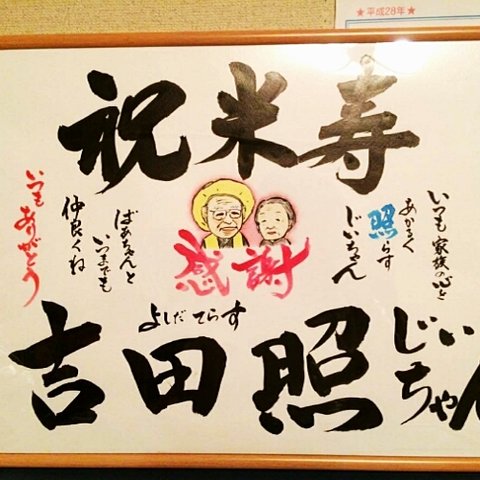 ★平成28年★
祝米寿
いつも家族の心を
あかるく
照らす
じいちゃん
感謝
ばあちゃんと
いつまでも
仲良くね
いつも
ありがとう
よしだ てらす
吉田照じいちゃん